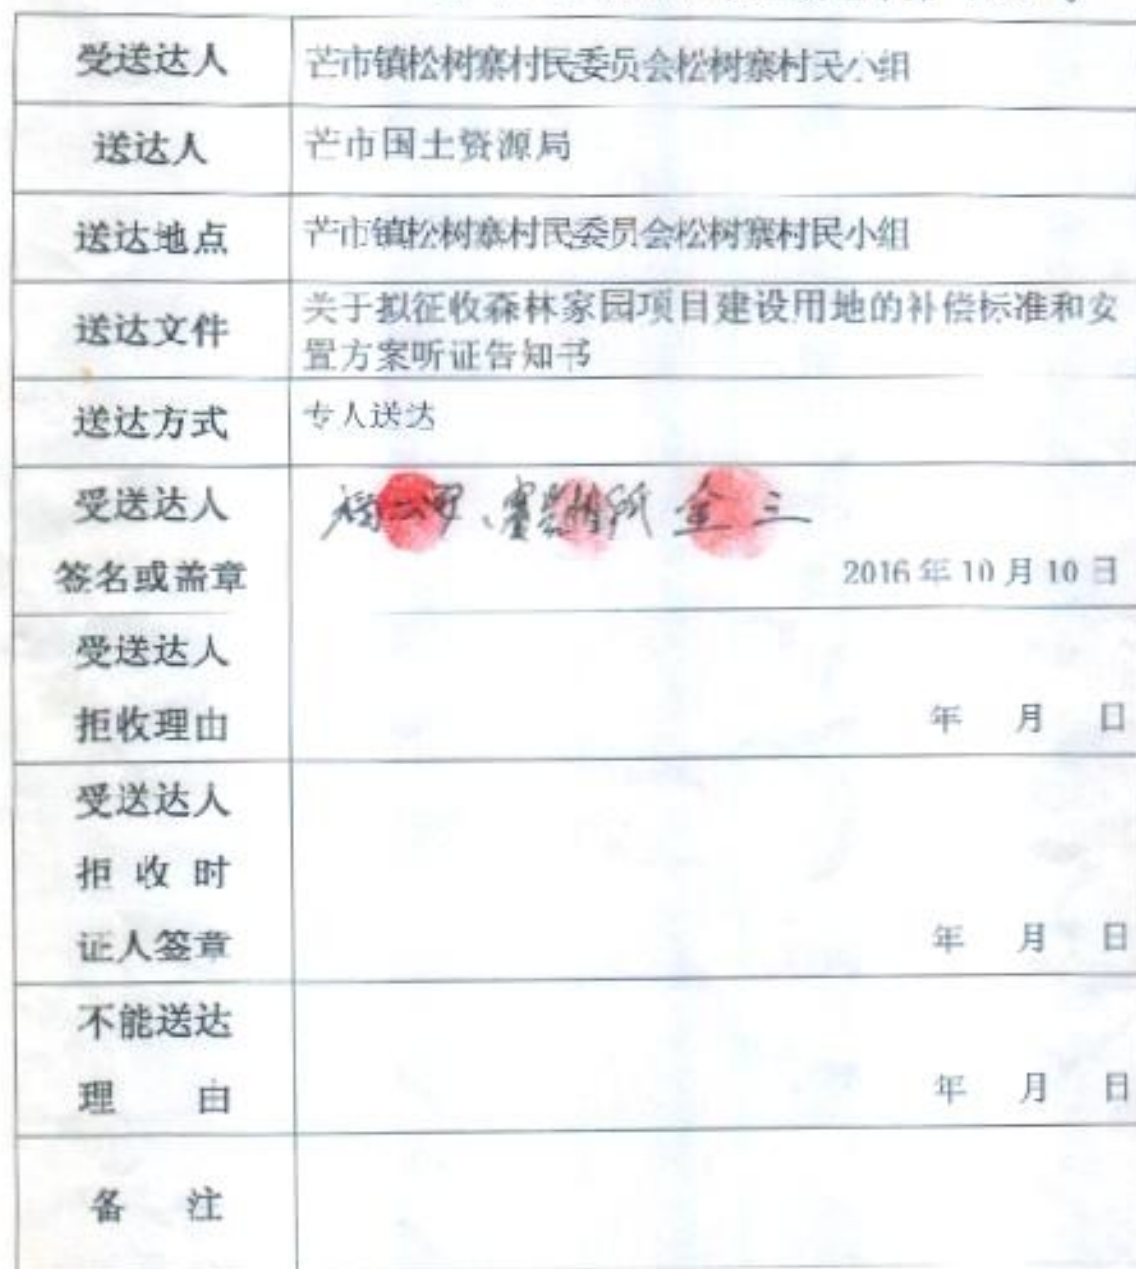 受送达人
芒市镇松树寨村民委员会松树寨村民小组
送达人
芒市国土资源局
送达地点
芒市镇松树寨村民委员会松树寨村民小组
送达文件
关于拟征收森林家园项目建设用地的补偿标准和安
置方案听证告知书
送达方式
专人送达
受送达人
签名或盖章
金三
2016年10月10日
受送达人
拒收理由
年 月 日
受送达人
拒收时
证人签章
年 月 日
不能送达
理 由
年 月 日
备 注